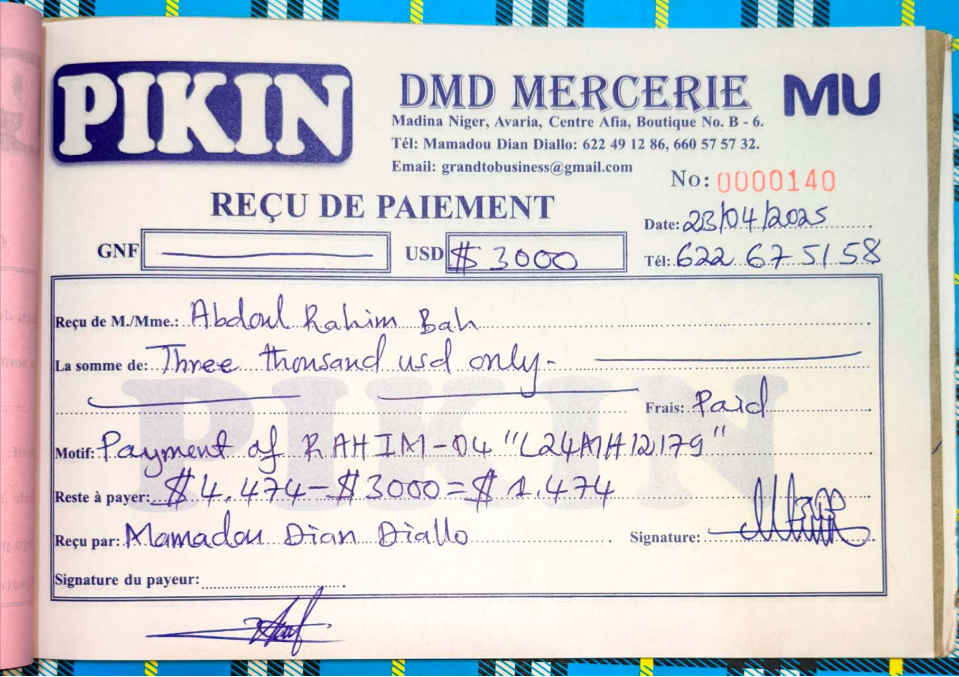 PIKIN
DMD MERCERIE
MU
Madina Niger, Avaria, Centre Afia, Boutique No. B - 6.
Tél: Mamadou Dian Diallo: 622 49 12 86, 660 57 57 32.
Email: grandtobusiness@gmail.com
No: 0000140
REÇU DE PAIEMENT
Date: 23/04/2025
GNF USD $ 3000
Tél: 622 67 51 58
Reçu de M./Mme.: Abdoul Rahim Bah
La somme de: Three thousand usd only-
Frais: Paid
Motif: Payment of RAHIM-04 "L24MH12179"
Reste à payer: $4,474-$3000=$ 1,474
Reçu par: Mamadou Dian Diallo Signature:
Signature du payeur:
PIKIN